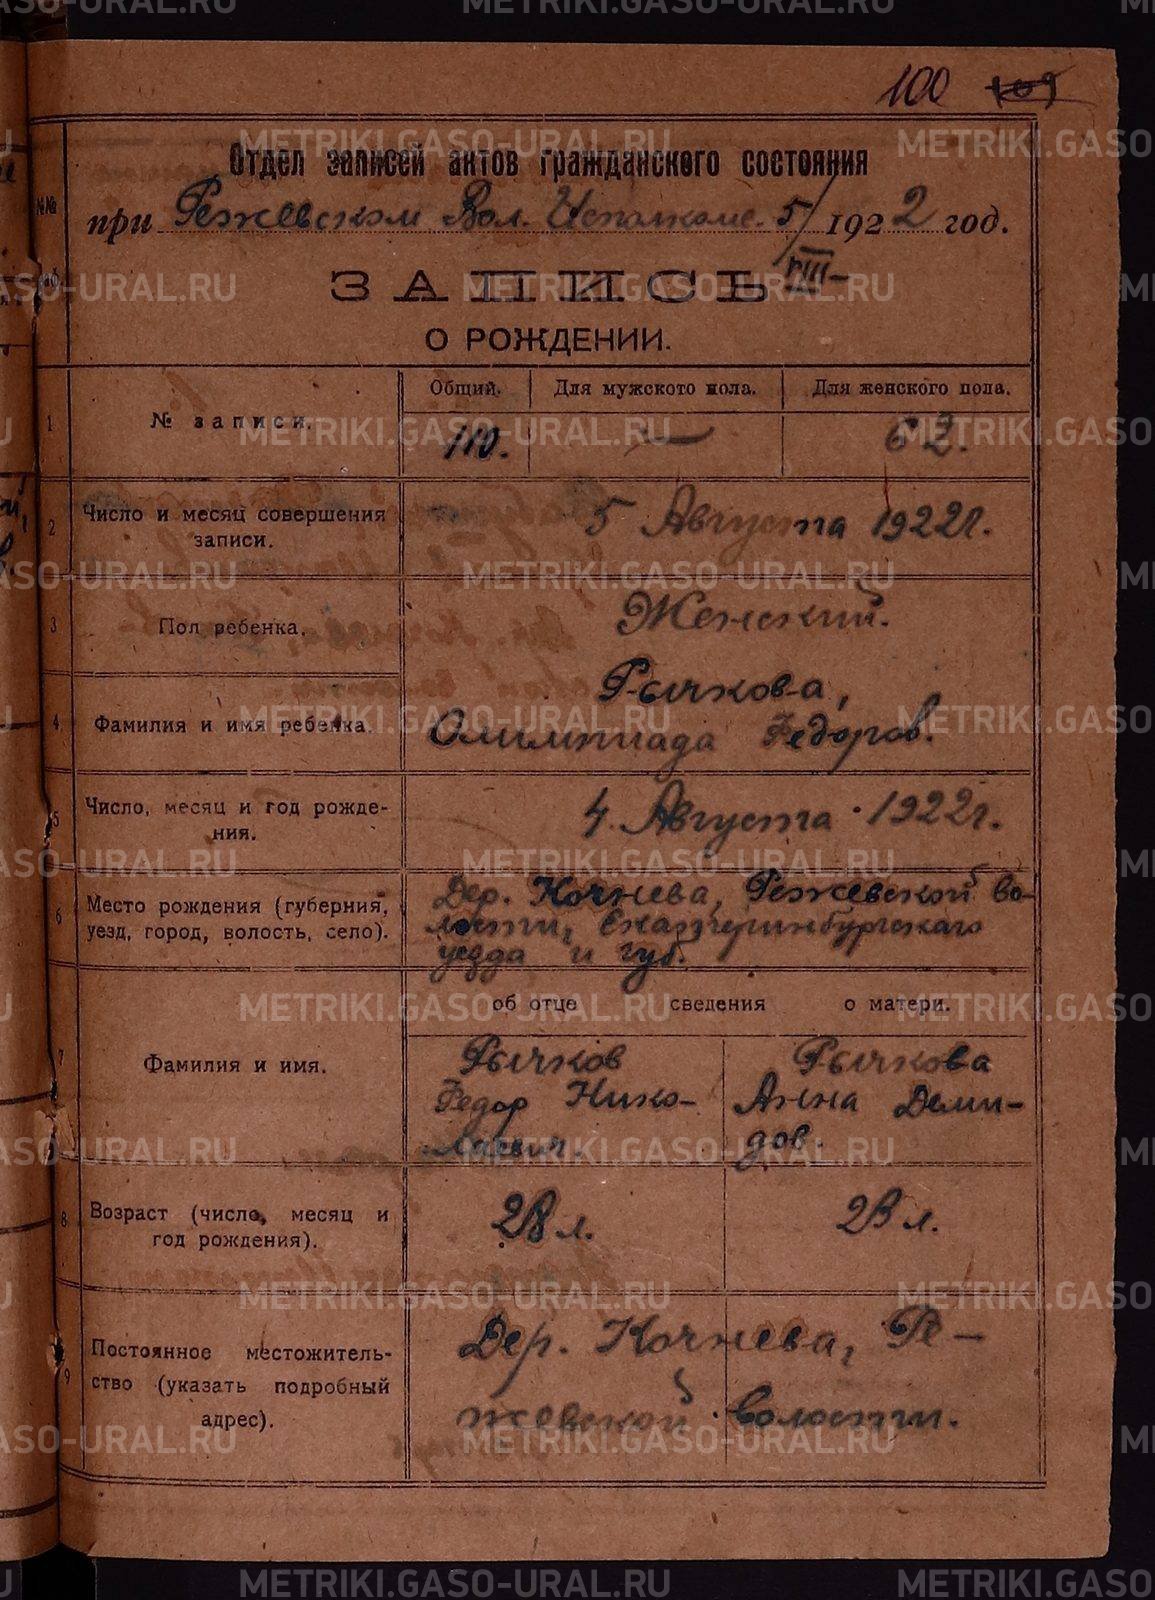 100 109
Отдел записей актов гражданского состояния
№№
при Режевском Вол. Исполкоме. 5/VIII- 1922 год.
ЗАПИСЬ
О РОЖДЕНИИ.
Общий. Для мужского пола. Для женского пола.
1 № записи. 110. — 62.
2 Число и месяц совершения записи. 5 Августа 1922г.
3 Пол ребенка. Женский.
4 Фамилия и имя ребенка. Рычкова,
Олимпиада Федоров.
5 Число, месяц и год рожде-
ния. 4 Августа 1922г.
6 Место рождения (губерния,
уезд, город, волость, село).
Дер. Кочнева, Режевской во-
лости, Екатеринбургскаго
уезда и губ.
об отце сведения о матери.
7 Фамилия и имя.
Рычков
Федор Нико-
лаевич.
Рычкова
Анна Деми-
дов.
8 Возраст (число, месяц и
год рождения).
28 л. 23 л.
9 Постоянное местожитель-
ство (указать подробный
адрес).
Дер. Кочнева, Ре-
жевской волости.
METRIKI.GASO-URAL.RU